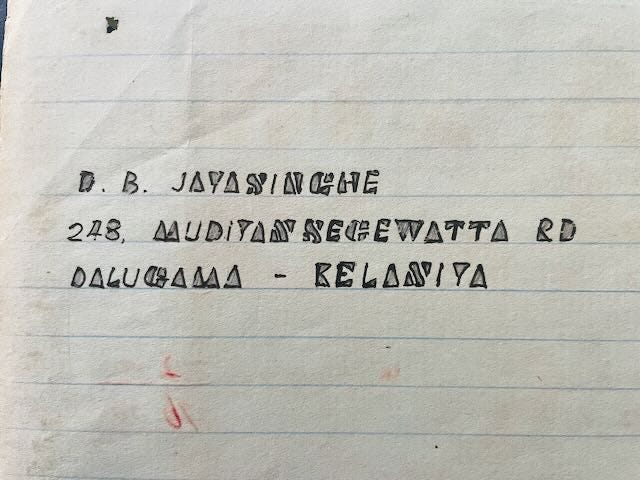 D. B. JAYASINGHE
248, MUDIYANSEGEWATTA RD
DALUGAMA - KELANIYA